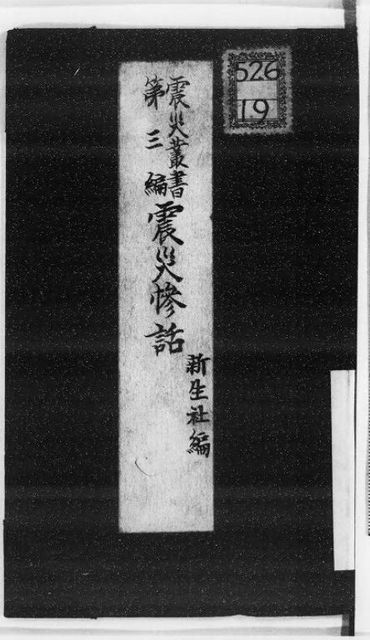 震災叢書
第三編
震災惨話
新生社編
526
19